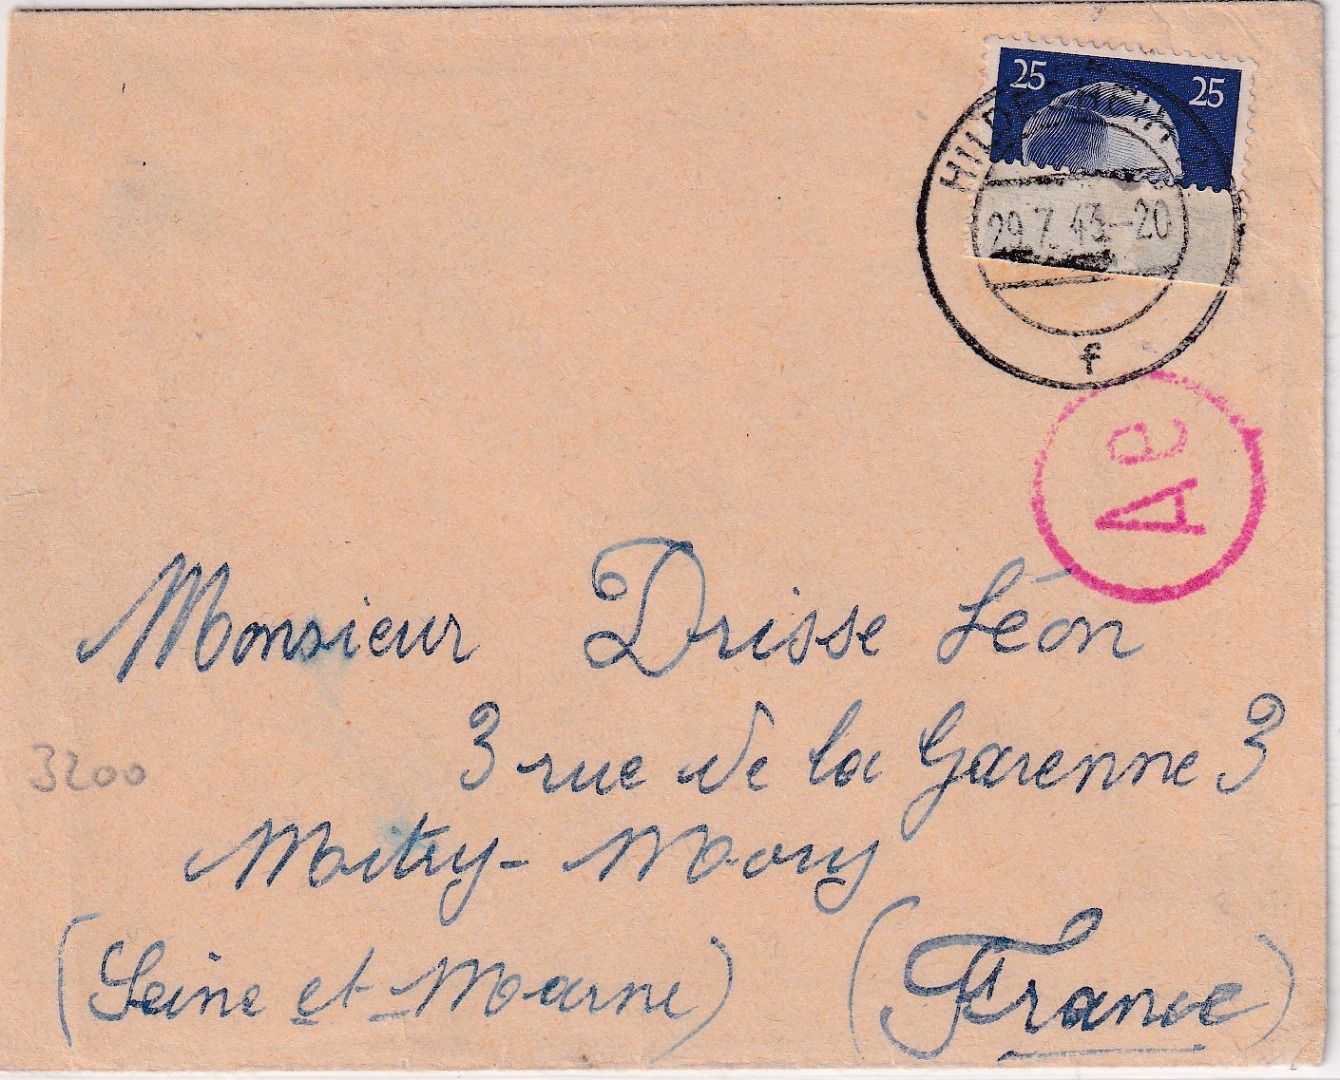 25 25
HILDESHEIM
29.7.43-20
f
Ae
Monsieur Drisse Léon
3 rue de la Garenne 3
3200
Mitry-Mory
(Seine et Marne) (France)